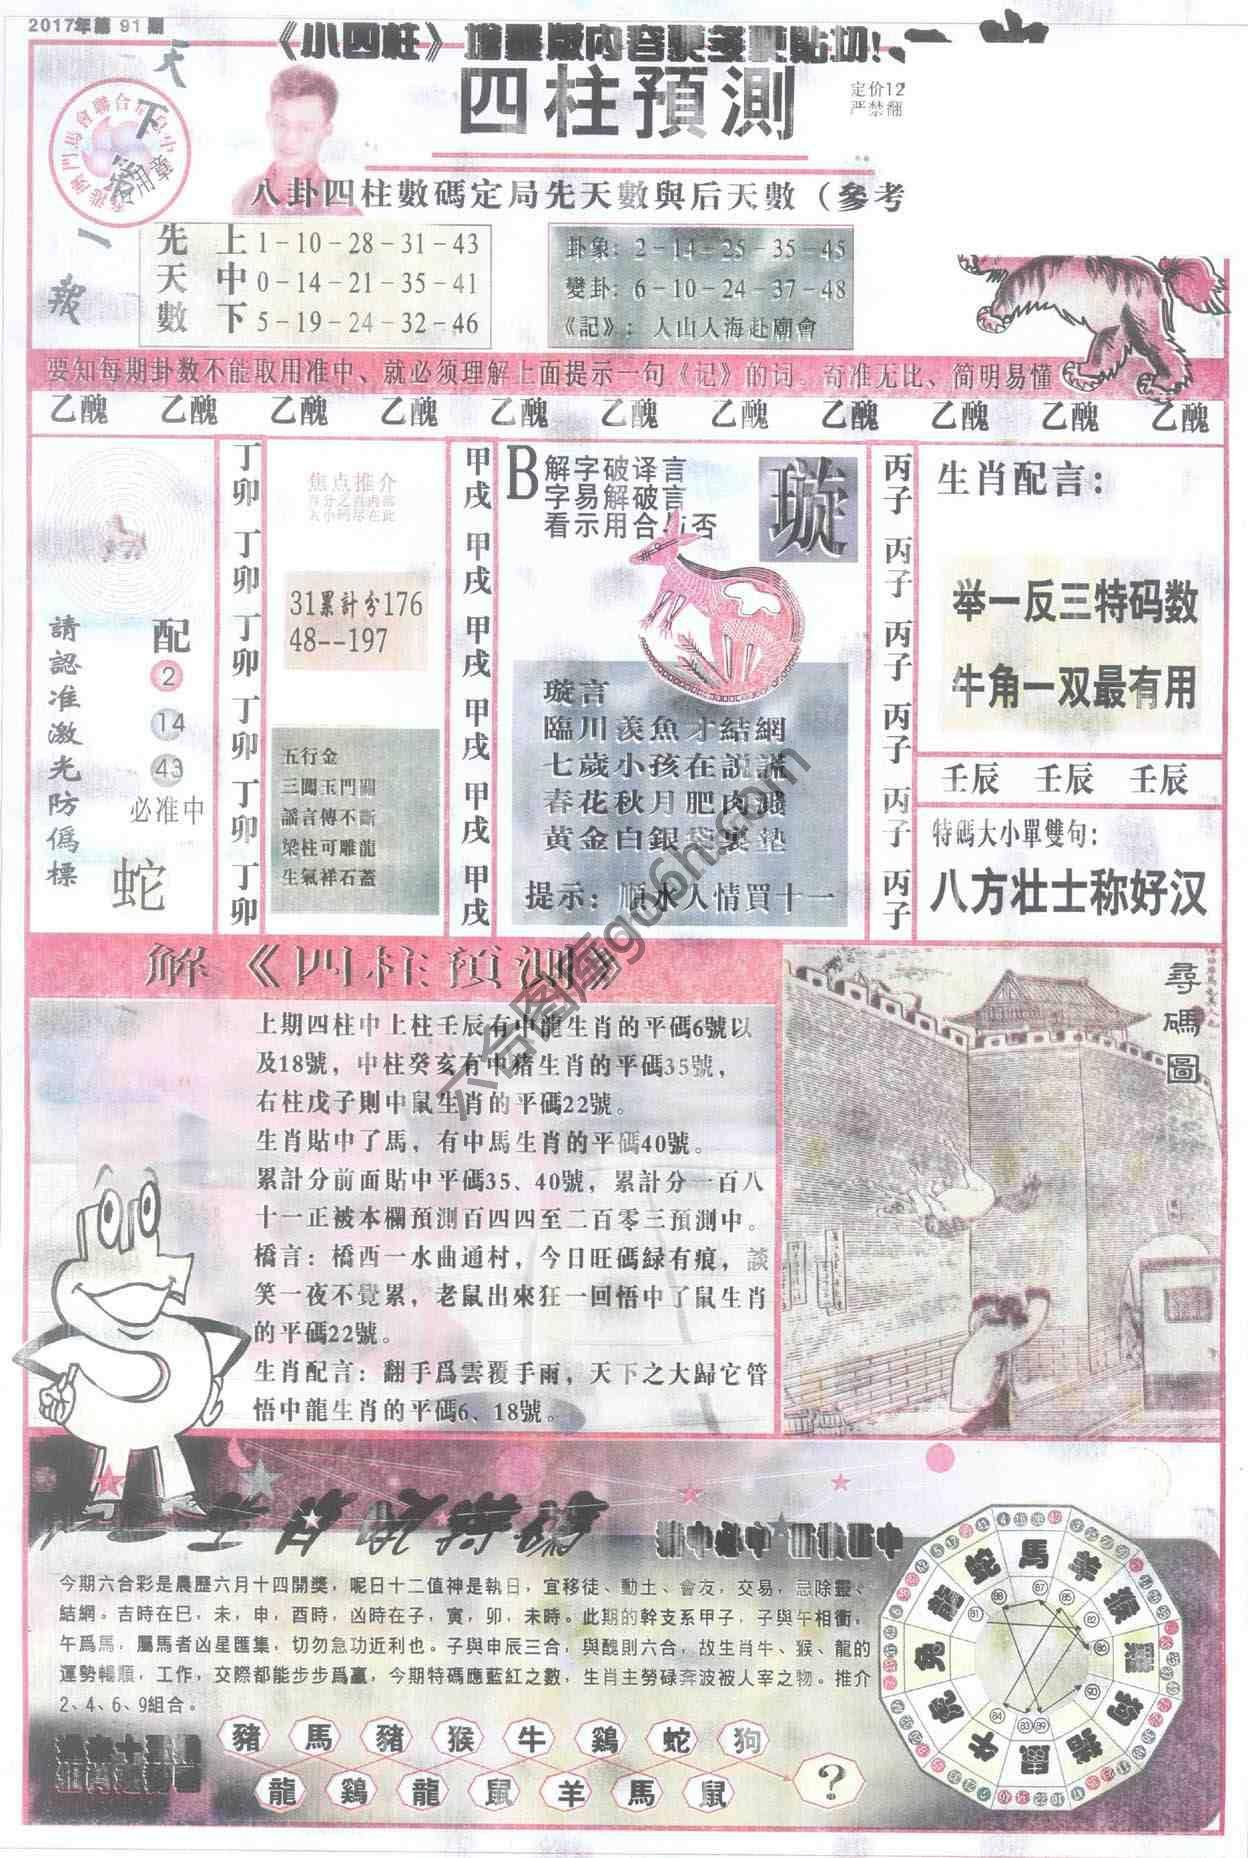 2017年第 91 期
《小四柱》增强版内容更多更贴切!
四柱預測
定价12
严禁翻
天
下
一
報
八卦四柱數碼定局先天數與后天數（參考
先天數
上 1－10－28－31－43
中 0－14－21－35－41
下 5－19－24－32－46
卦象: 2－14－25－35－45
變卦: 6－10－24－37－48
《記》: 人山人海赴廟會
要知每期卦数不能取用准中、就必须理解上面提示一句《记》的词。奇准无比、简明易懂
乙醜 乙醜 乙醜 乙醜 乙醜 乙醜 乙醜 乙醜 乙醜 乙醜 乙醜
請認准激光防偽標
配
2
14
43
必准中
蛇
丁卯 丁卯 丁卯 丁卯 丁卯 丁卯
焦点推介
百分之百内部
大小码尽在此
31累計分176
48--197
五行金
三闖玉門關
謠言傳不斷
梁柱可雕龍
生氣祥石蓋
甲戌 甲戌 甲戌 甲戌 甲戌 甲戌
B
解字破译言
字易解破言
看示用合与否
璇
璇言
臨川羡魚才結網
七歲小孩在説謊
春花秋月肥肉濺
黃金白銀袋裏墊
提示: 順水人情買十一
丙子 丙子 丙子 丙子 丙子 丙子
生肖配言:
举一反三特码数
牛角一双最有用
壬辰 壬辰 壬辰
特碼大小單雙句:
八方壮士称好汉
解《四柱預測》
上期四柱中上柱壬辰有中龍生肖的平碼6號以
及18號，中柱癸亥有中豬生肖的平碼35號，
右柱戊子則中鼠生肖的平碼22號。
生肖貼中了馬，有中馬生肖的平碼40號。
累計分前面貼中平碼35、40號，累計分一百八
十一正被本欄預測百四四至二百零三預測中。
橋言: 橋西一水曲通村，今日旺碼緑有痕，談
笑一夜不覺累，老鼠出來狂一回悟中了鼠生肖
的平碼22號。
生肖配言: 翻手爲雲覆手雨，天下之大歸它管
悟中龍生肖的平碼6、18號。
尋碼圖
今期六合彩是農歷六月十四開獎，呢日十二值神是執日，宜移徒、動土、會友，交易，忌除靈、
結網。吉時在巳，未，申，酉時，凶時在子，寅，卯，未時。此期的幹支系甲子，子與午相衝，
午爲馬，屬馬者凶星匯集，切勿急功近利也。子與申辰三合，與醜則六合，故生肖牛、猴、龍的
運勢暢順，工作，交際都能步步爲贏，今期特碼應藍紅之數，生肖主勞碌奔波被人宰之物。推介
2、4、6、9組合。
豬 馬 豬 猴 牛 鷄 蛇 狗
龍 鷄 龍 鼠 羊 馬 鼠 ?
馬 羊 猴 鷄 狗 豬 鼠 牛 虎 兔 龍 蛇
六合图库gu6h.com